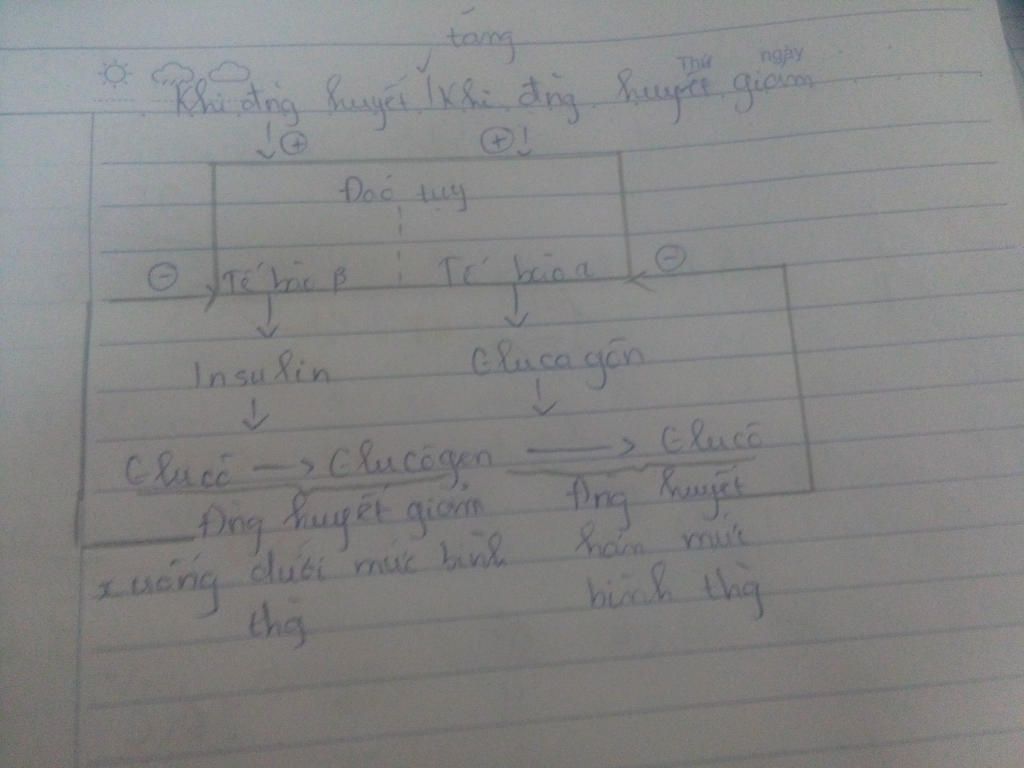 tăng
Thứ ngày
Khi đng huyết / Khi đng huyết giảm
+ +
Đảo tụy
- Tế bào β Tế bào α -
Insulin Glucagôn
Glucô → Glucôgen → Glucô
Đng huyết giảm Đng huyết
xuống dưới mức bình hơn mức
thg bình thg